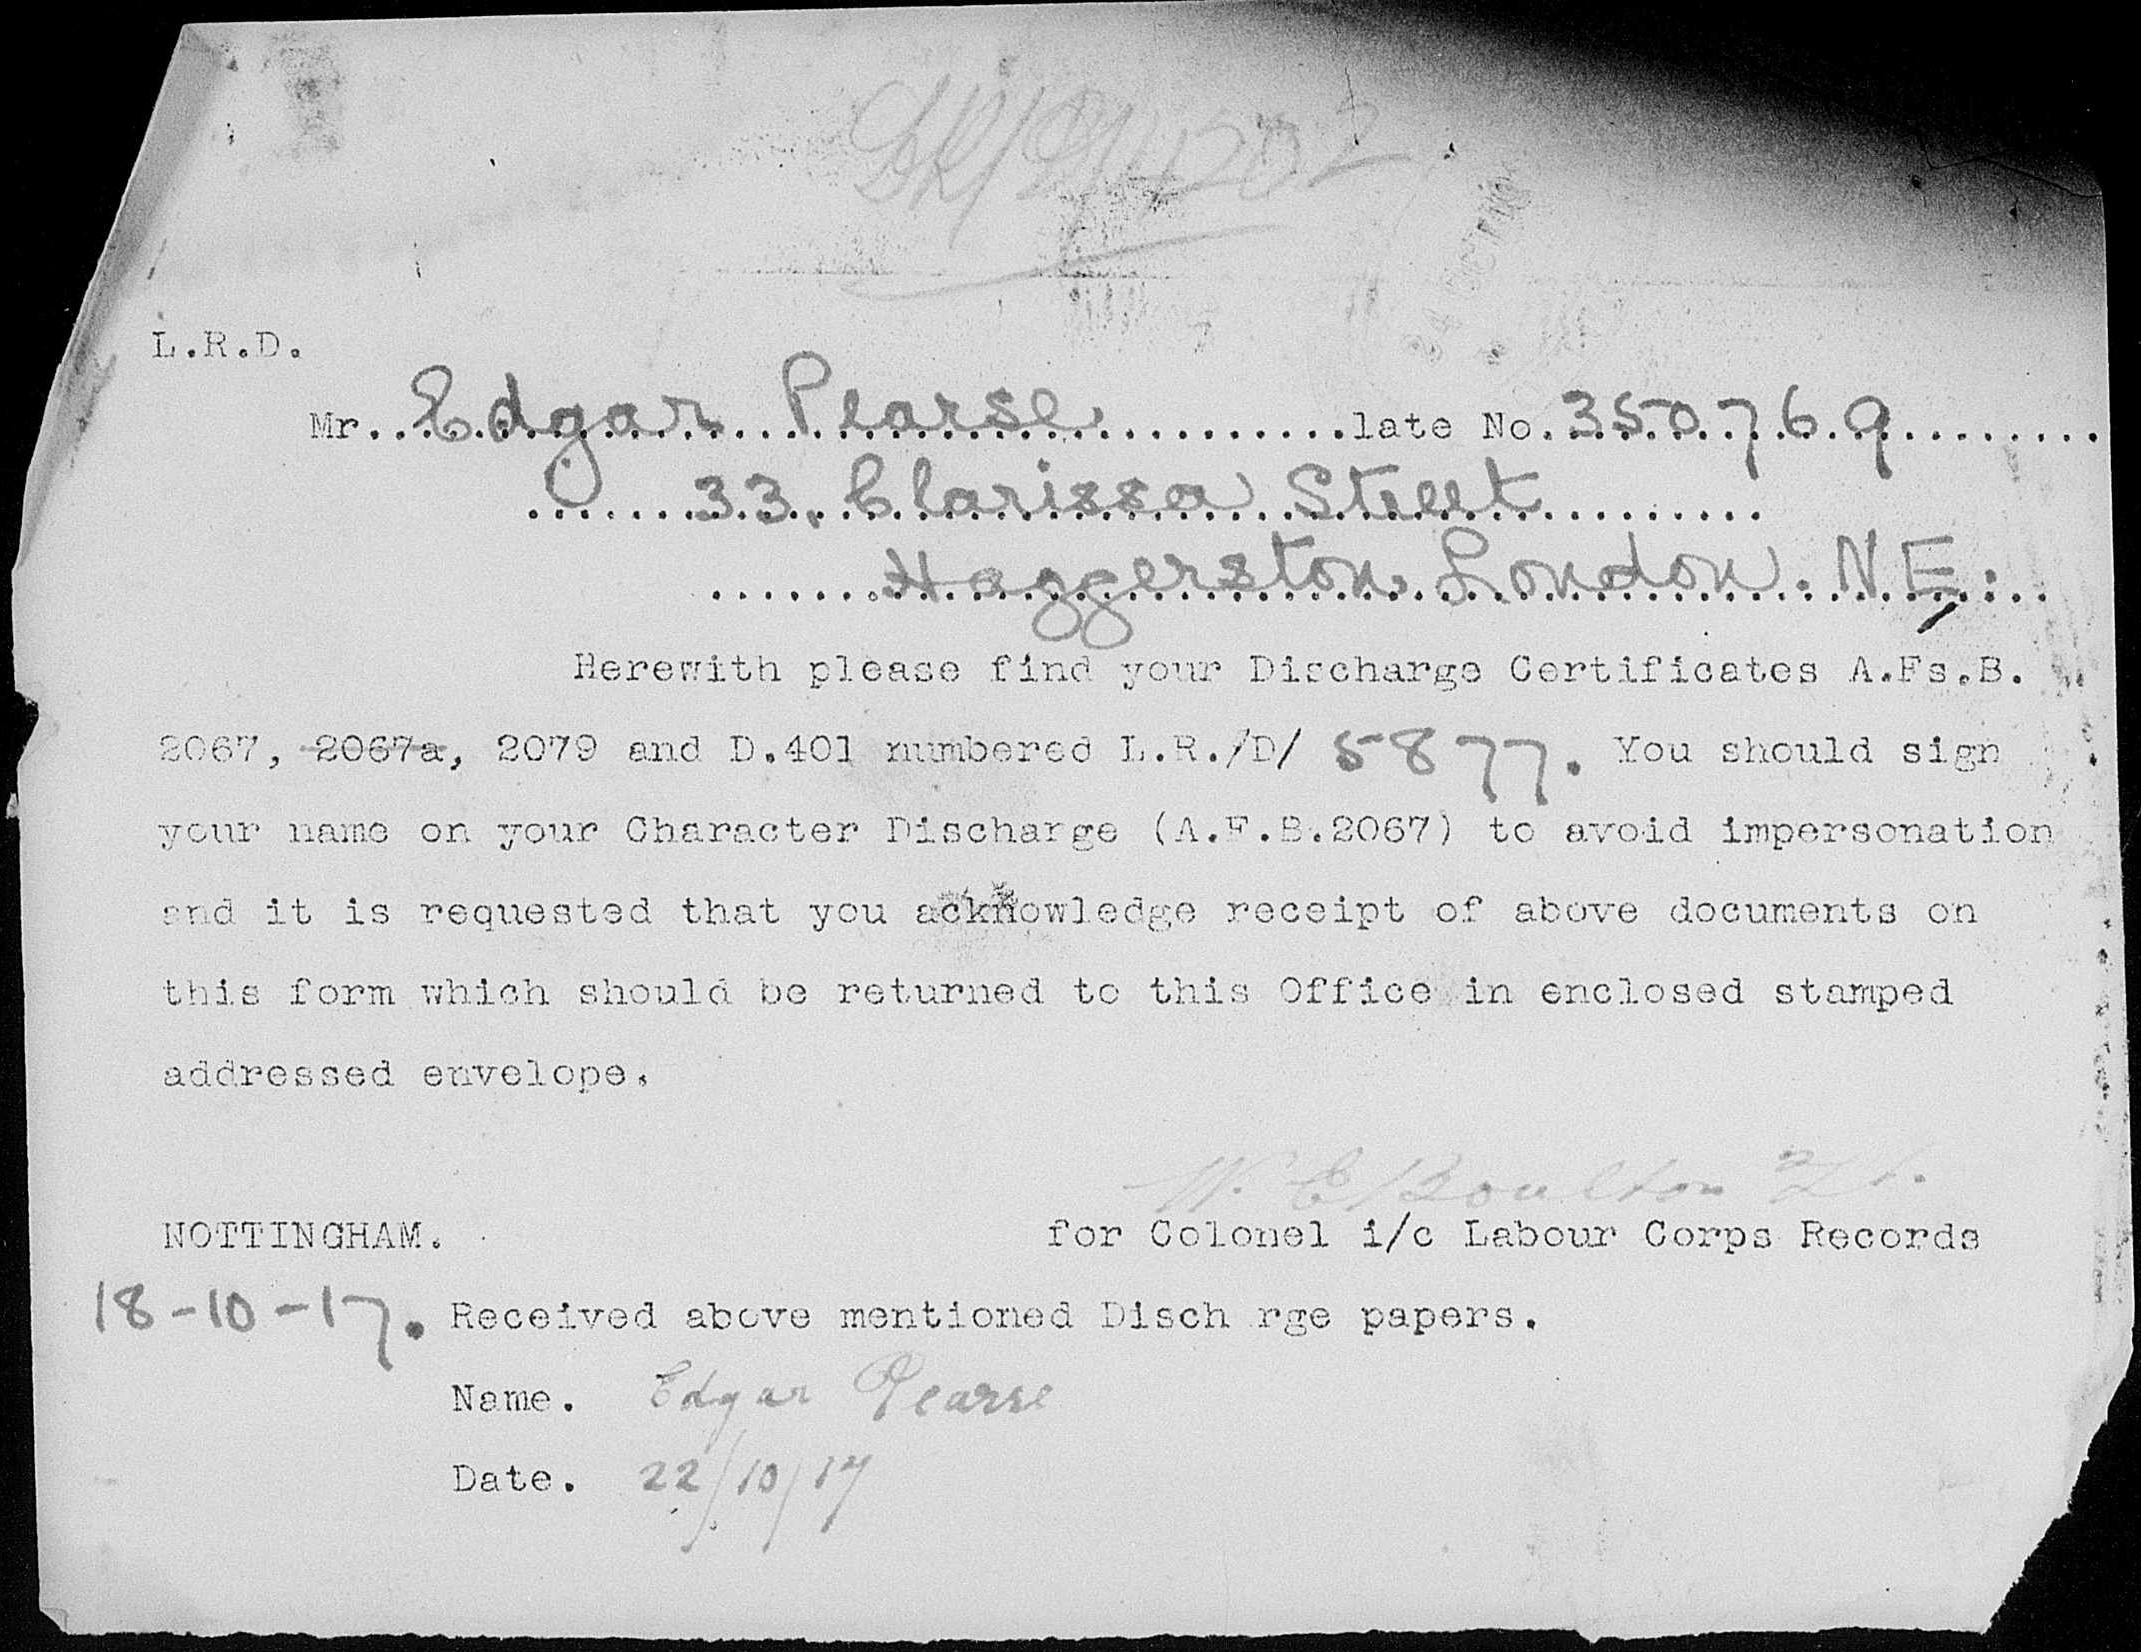 L.R.D.
Mr. Edgar Pearse late No. 350769
33. Clarissa Street
Haggerston. London. N.E.
Herewith please find your Discharge Certificates A.Fs.B.
2067, 2067a, 2079 and D.401 numbered L.R./D/ 5877. You should sign
your name on your Character Discharge (A.F.B.2067) to avoid impersonation
and it is requested that you acknowledge receipt of above documents on
this form which should be returned to this Office in enclosed stamped
addressed envelope.
W. E. Boulton Lt.
NOTTINGHAM. for Colonel i/c Labour Corps Records
18-10-17. Received above mentioned Disch rge papers.
Name. Edgar Pearse
Date. 22/10/17